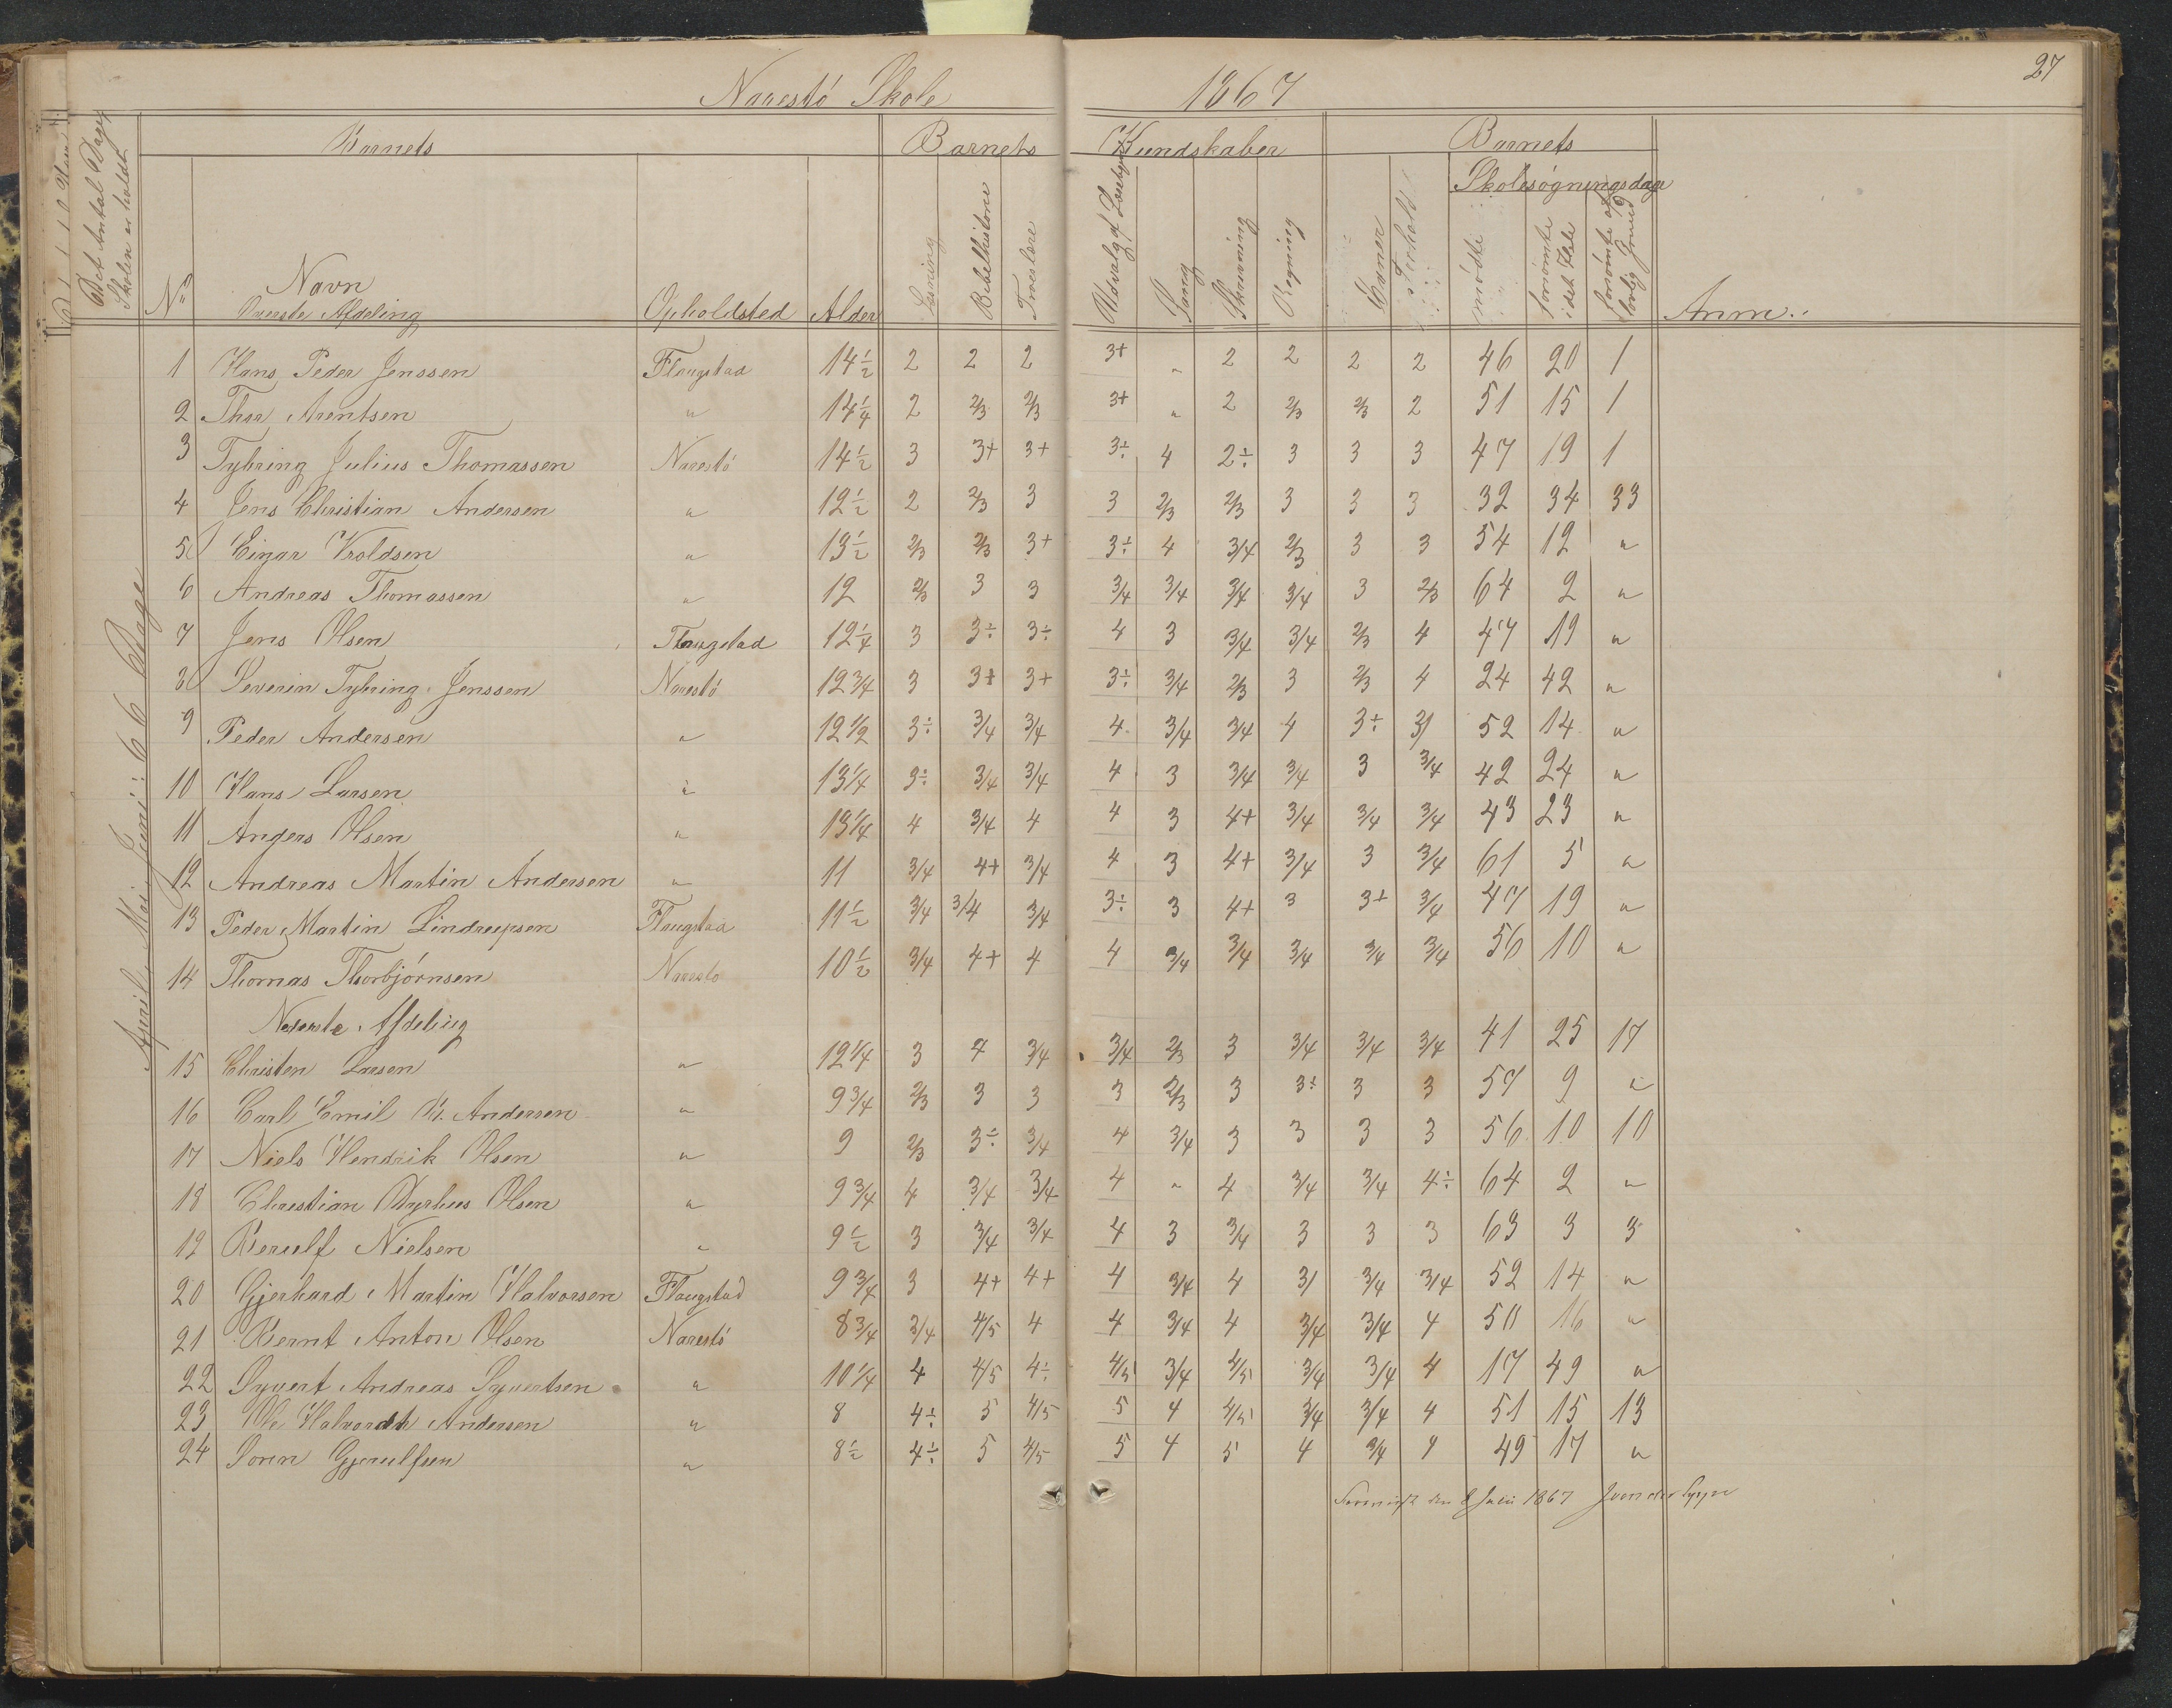 27
Narestö Skole 1867
Det Antal Dage
Skolen er holdt
Barnets Barnets Kundskaber Barnets
Skolesögningsdage
No Navn Opholdsted Alder Læsning Bibelhistorie Troeslære Udvalg af Læsebogen Sang Skrivning Regning Evner Forhold mödte forsömte i det Hele forsömte af lovlig Grund Anm.
Överste Afdeling
April, Mai, Juni: 66 Dage
1 Hans Peder Jenssen Flangstad 14 1/2 2 2 2 3+ " 2 2 2 2 46 20 1
2 Thor Arentsen " 14 1/4 2 2/3 2/3 3+ " 2 2/3 2/3 2 51 15 1
3 Tybring Julius Thomassen Narestö 14 1/2 3 3+ 3+ 3÷ 4 2÷ 3 3 3 47 19 1
4 Jens Christian Andersen " 12 1/2 2 2/3 3 3 2/3 2/3 3 3 3 32 34 33
5 Einar Vroldsen " 13 1/2 2/3 2/3 3+ 3÷ 4 3/4 2/3 3 3 54 12 "
6 Andreas Thomassen " 12 2/3 3 3 3/4 3/4 3/4 3/4 3 2/3 64 2 "
7 Jens Olsen Flangstad 12 1/4 3 3÷ 3÷ 4 3 3/4 3/4 2/3 4 47 19 "
8 Severin Tybring Jenssen Narestö 12 3/4 3 3+ 3+ 3÷ 3/4 2/3 3 2/3 4 24 42 "
9 Peder Andersen " 12 1/2 3÷ 3/4 3/4 4 3/4 3/4 4 3÷ 3/ 52 14 "
10 Hans Larsen " 13 1/4 3÷ 3/4 3/4 4 3 3/4 3/4 3 3/4 42 24 "
11 Anders Olsen " 13 1/4 4 3/4 4 4 3 4+ 3/4 3/4 3/4 43 23 "
12 Andreas Martin Andersen " 11 3/4 4+ 3/4 4 3 4+ 3/4 3 3/4 61 5 "
13 Peder Martin Lindrupsen Flangstad 11 1/2 3/4 3/4 3/4 3÷ 3 4+ 3 3+ 3/4 47 19 "
14 Thomas Thorbjörnsen Naresto 10 1/2 3/4 4+ 4 4 3/4 3/4 3/4 3/4 3/4 56 10 "
Nederste Afdeling
15 Christen Larsen " 12 1/4 3 4 3/4 3/4 2/3 3 3/4 3/4 3/4 41 25 17
16 Carl Emil Andersen " 9 3/4 2/3 3 3 3 2/3 3 3÷ 3 3 57 9 "
17 Niels Hendrik Olsen " 9 2/3 3÷ 3/4 4 3/4 3 3 3 3 56 10 10
18 Christian Dyrhus Olsen " 9 3/4 4 3/4 3/4 4 " 4 3/4 3/4 4÷ 64 2 "
19 Berulf Nielsen " 9 1/2 3 3/4 3/4 4 3 3/4 3 3 3 63 3 3
20 Gjerhard Martin Halvorsen Flangstad 9 3/4 3 4+ 4+ 4 3/4 4 3/ 3/4 3/4 52 14 "
21 Bernt Anton Olsen Narestö 8 3/4 3/4 4/5 4 4 3/4 4 3/4 3/4 4 50 16 "
22 Syvert Andreas Syvertsen " 10 1/4 4 4/5 4÷ 4/5 3/4 4/5 3/4 3/4 4 17 49 "
23 Ole Andersen " 8 4÷ 5 4/5 5 4 4/5 3/4 3/4 4 51 15 13
24 Soren Gjerulfsen " 8 1/2 4÷ 5 4/5 5 4 5 4 3/4 4 49 17 "
den 8 Juli 1867